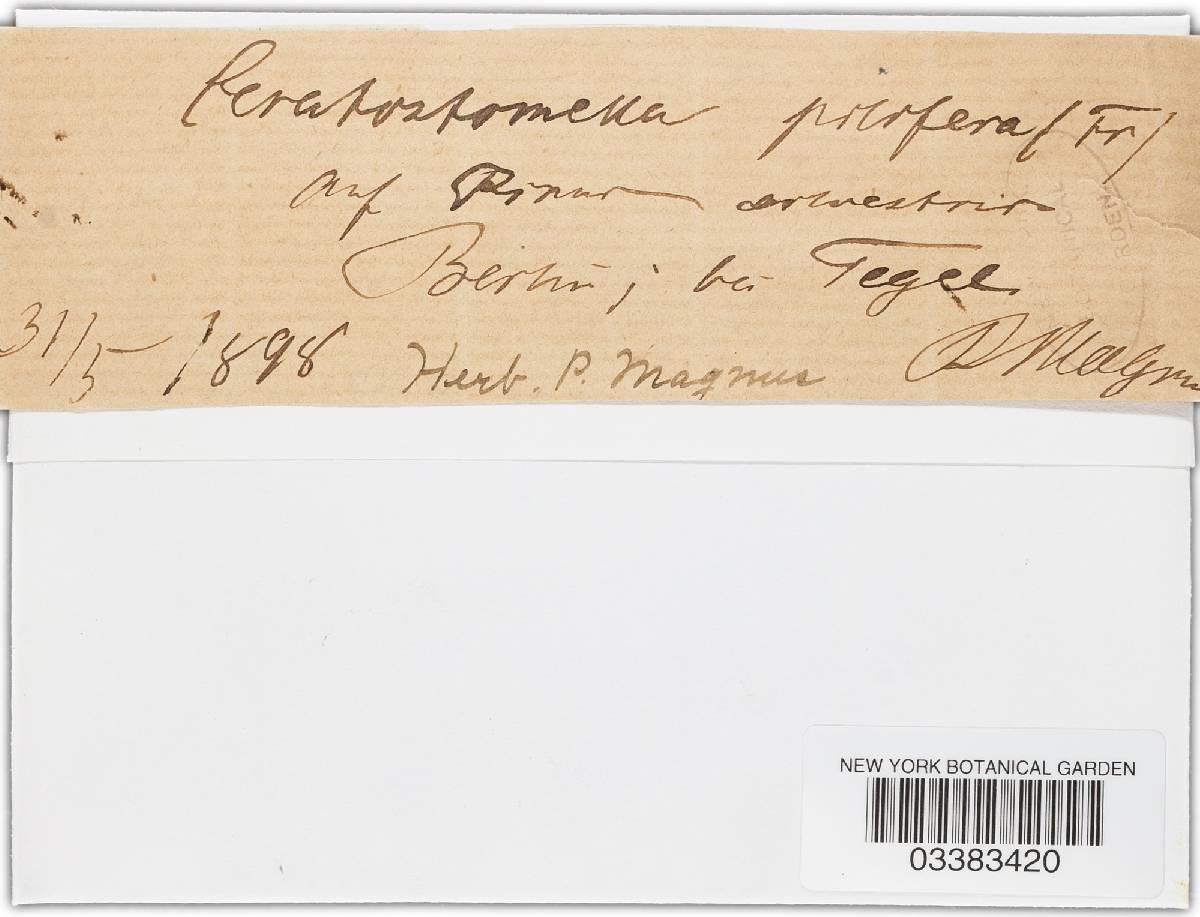 Ceratostomella pilifera (Fr)
auf Pinus silvestris
Berlin; bei Tegel
31/5 1898 Herb. P. Magnus P Magnus
NEW YORK BOTANICAL GARDEN
03383420